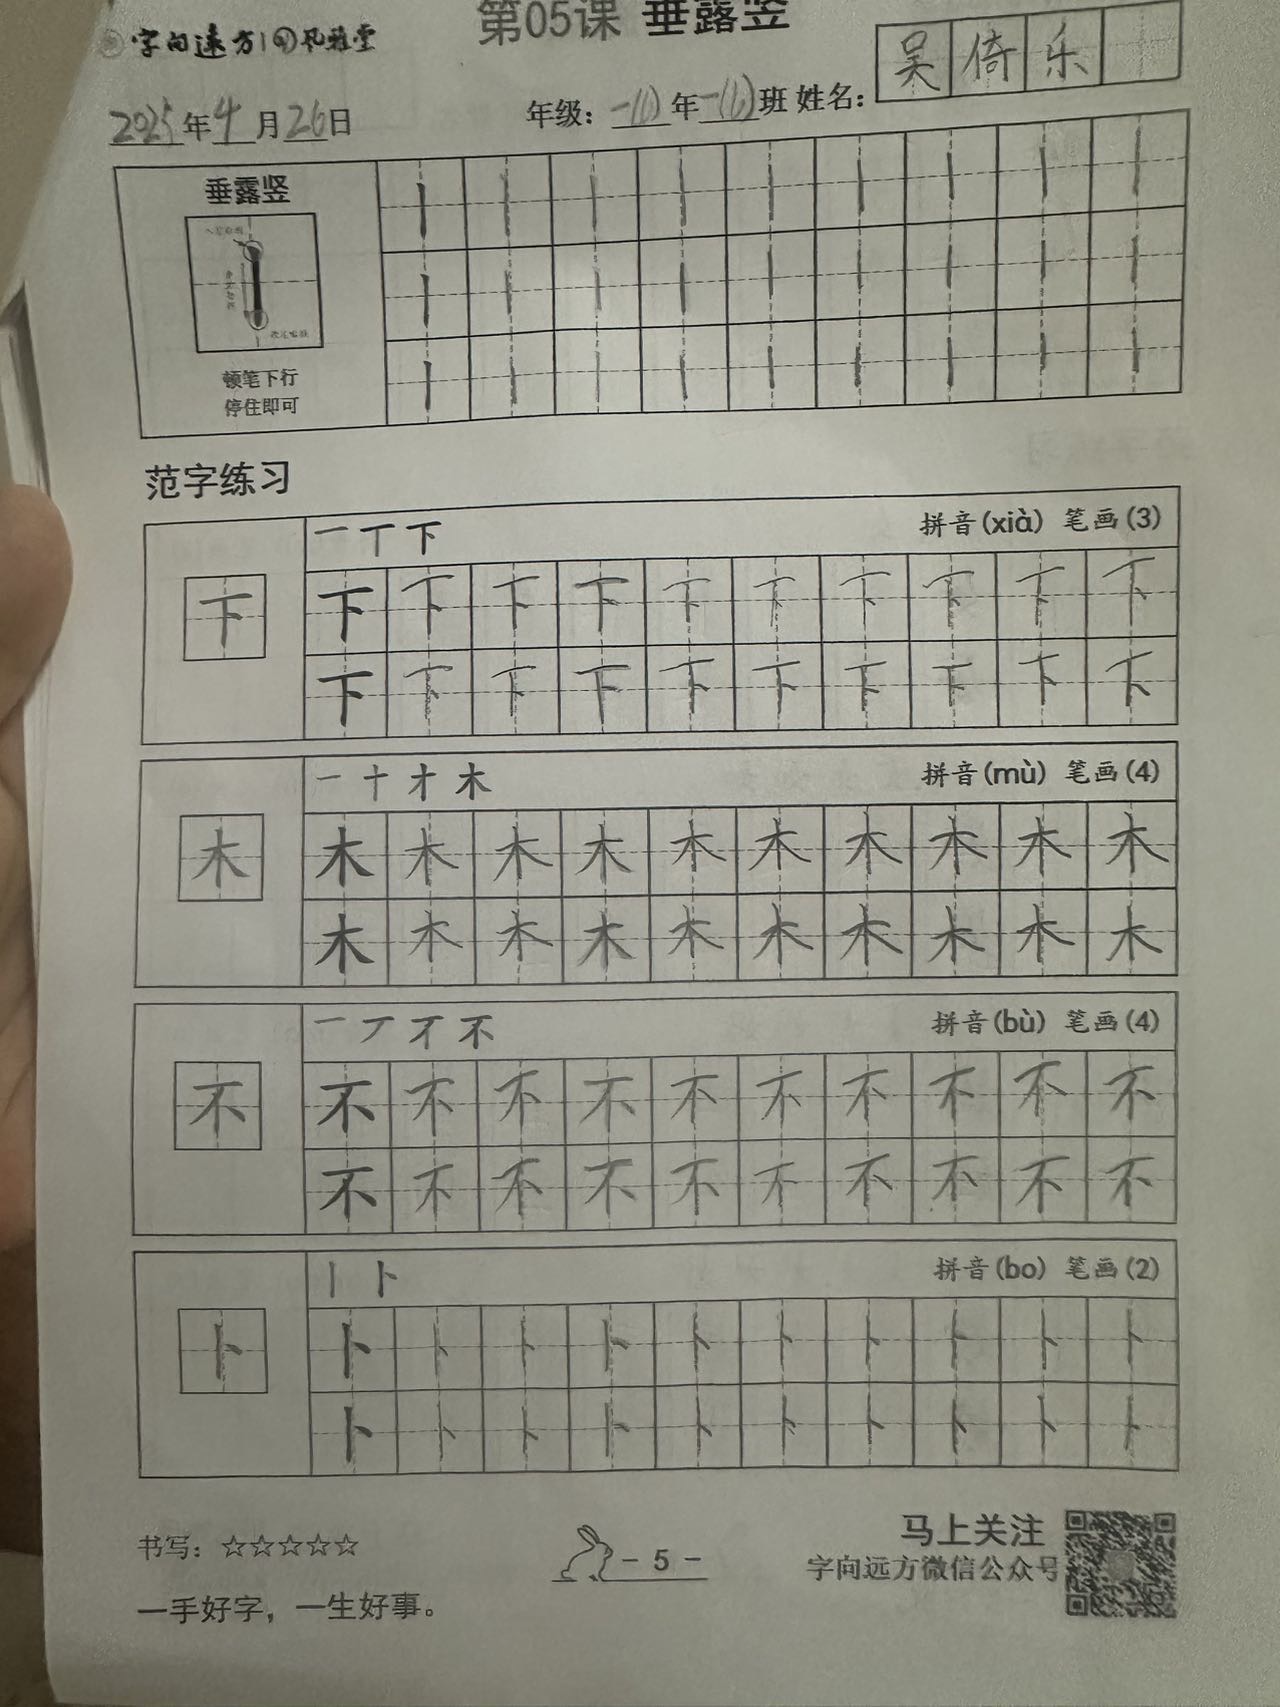 第05课 垂露竖
字向远方
吴倚乐
2025年4月26日 年级：一(1)年一(1)班 姓名：
垂露竖
顿笔下行
停住即可
范字练习
一 丁 下 拼音(xià) 笔画(3)
下 下 下 下 下 下 下 下 下 下 下
下 下 下 下 下 下 下 下 下 下
一 十 才 木 拼音(mù) 笔画(4)
木 木 木 木 木 木 木 木 木 木 木
木 木 木 木 木 木 木 木 木 木
一 丆 不 拼音(bù) 笔画(4)
不 不 不 不 不 不 不 不 不 不 不
不 不 不 不 不 不 不 不 不 不
丨 卜 拼音(bo) 笔画(2)
卜 卜 卜 卜 卜 卜 卜 卜 卜 卜 卜
卜 卜 卜 卜 卜 卜 卜 卜 卜 卜
书写：☆☆☆☆☆
一手好字，一生好事。
- 5 -
马上关注
字向远方微信公众号